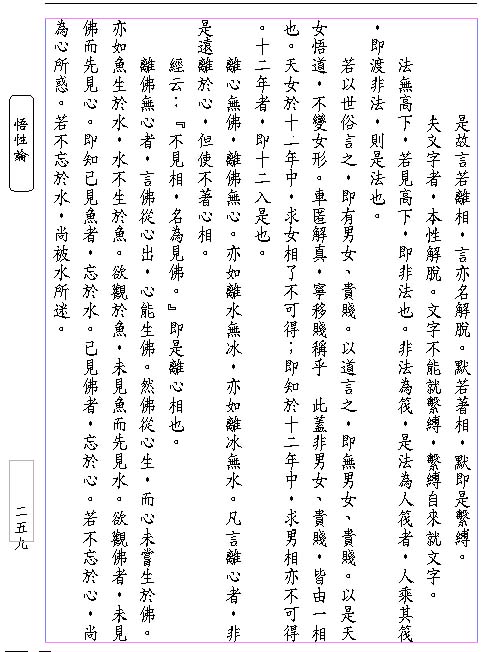 是故言若離相，言亦名解脫。默若著相，默即是繫縛。
夫文字者，本性解脫。文字不能就繫縛，繫縛自來就文字。
法無高下，若見高下，即非法也。非法為筏，是法為人筏者，人乘其筏
，即渡非法，則是法也。
若以世俗言之，即有男女、貴賤。以道言之，即無男女、貴賤。以是天
女悟道，不變女形。車匿解真，寧移賤稱乎　此蓋非男女、貴賤，皆由一相
也。天女於十二年中，求女相了不可得；即知於十二年中，求男相亦不可得
。十二年者，即十二入是也。
離心無佛，離佛無心。亦如離水無冰，亦如離冰無水。凡言離心者，非
是遠離於心，但使不著心相。
經云：『不見相，名為見佛。』即是離心相也。
離佛無心者，言佛從心出，心能生佛。然佛從心生，而心未嘗生於佛。
亦如魚生於水，水不生於魚。欲觀於魚，未見魚而先見水。欲觀佛者，未見
佛而先見心。即知已見魚者，忘於水。已見佛者，忘於心。若不忘於心，尚
為心所惑。若不忘於水，尚被水所迷。
悟性論
二五九